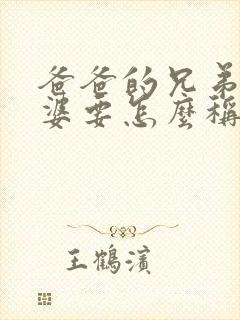 爸爸的兄弟
婆要怎麼稱
王鶴濱